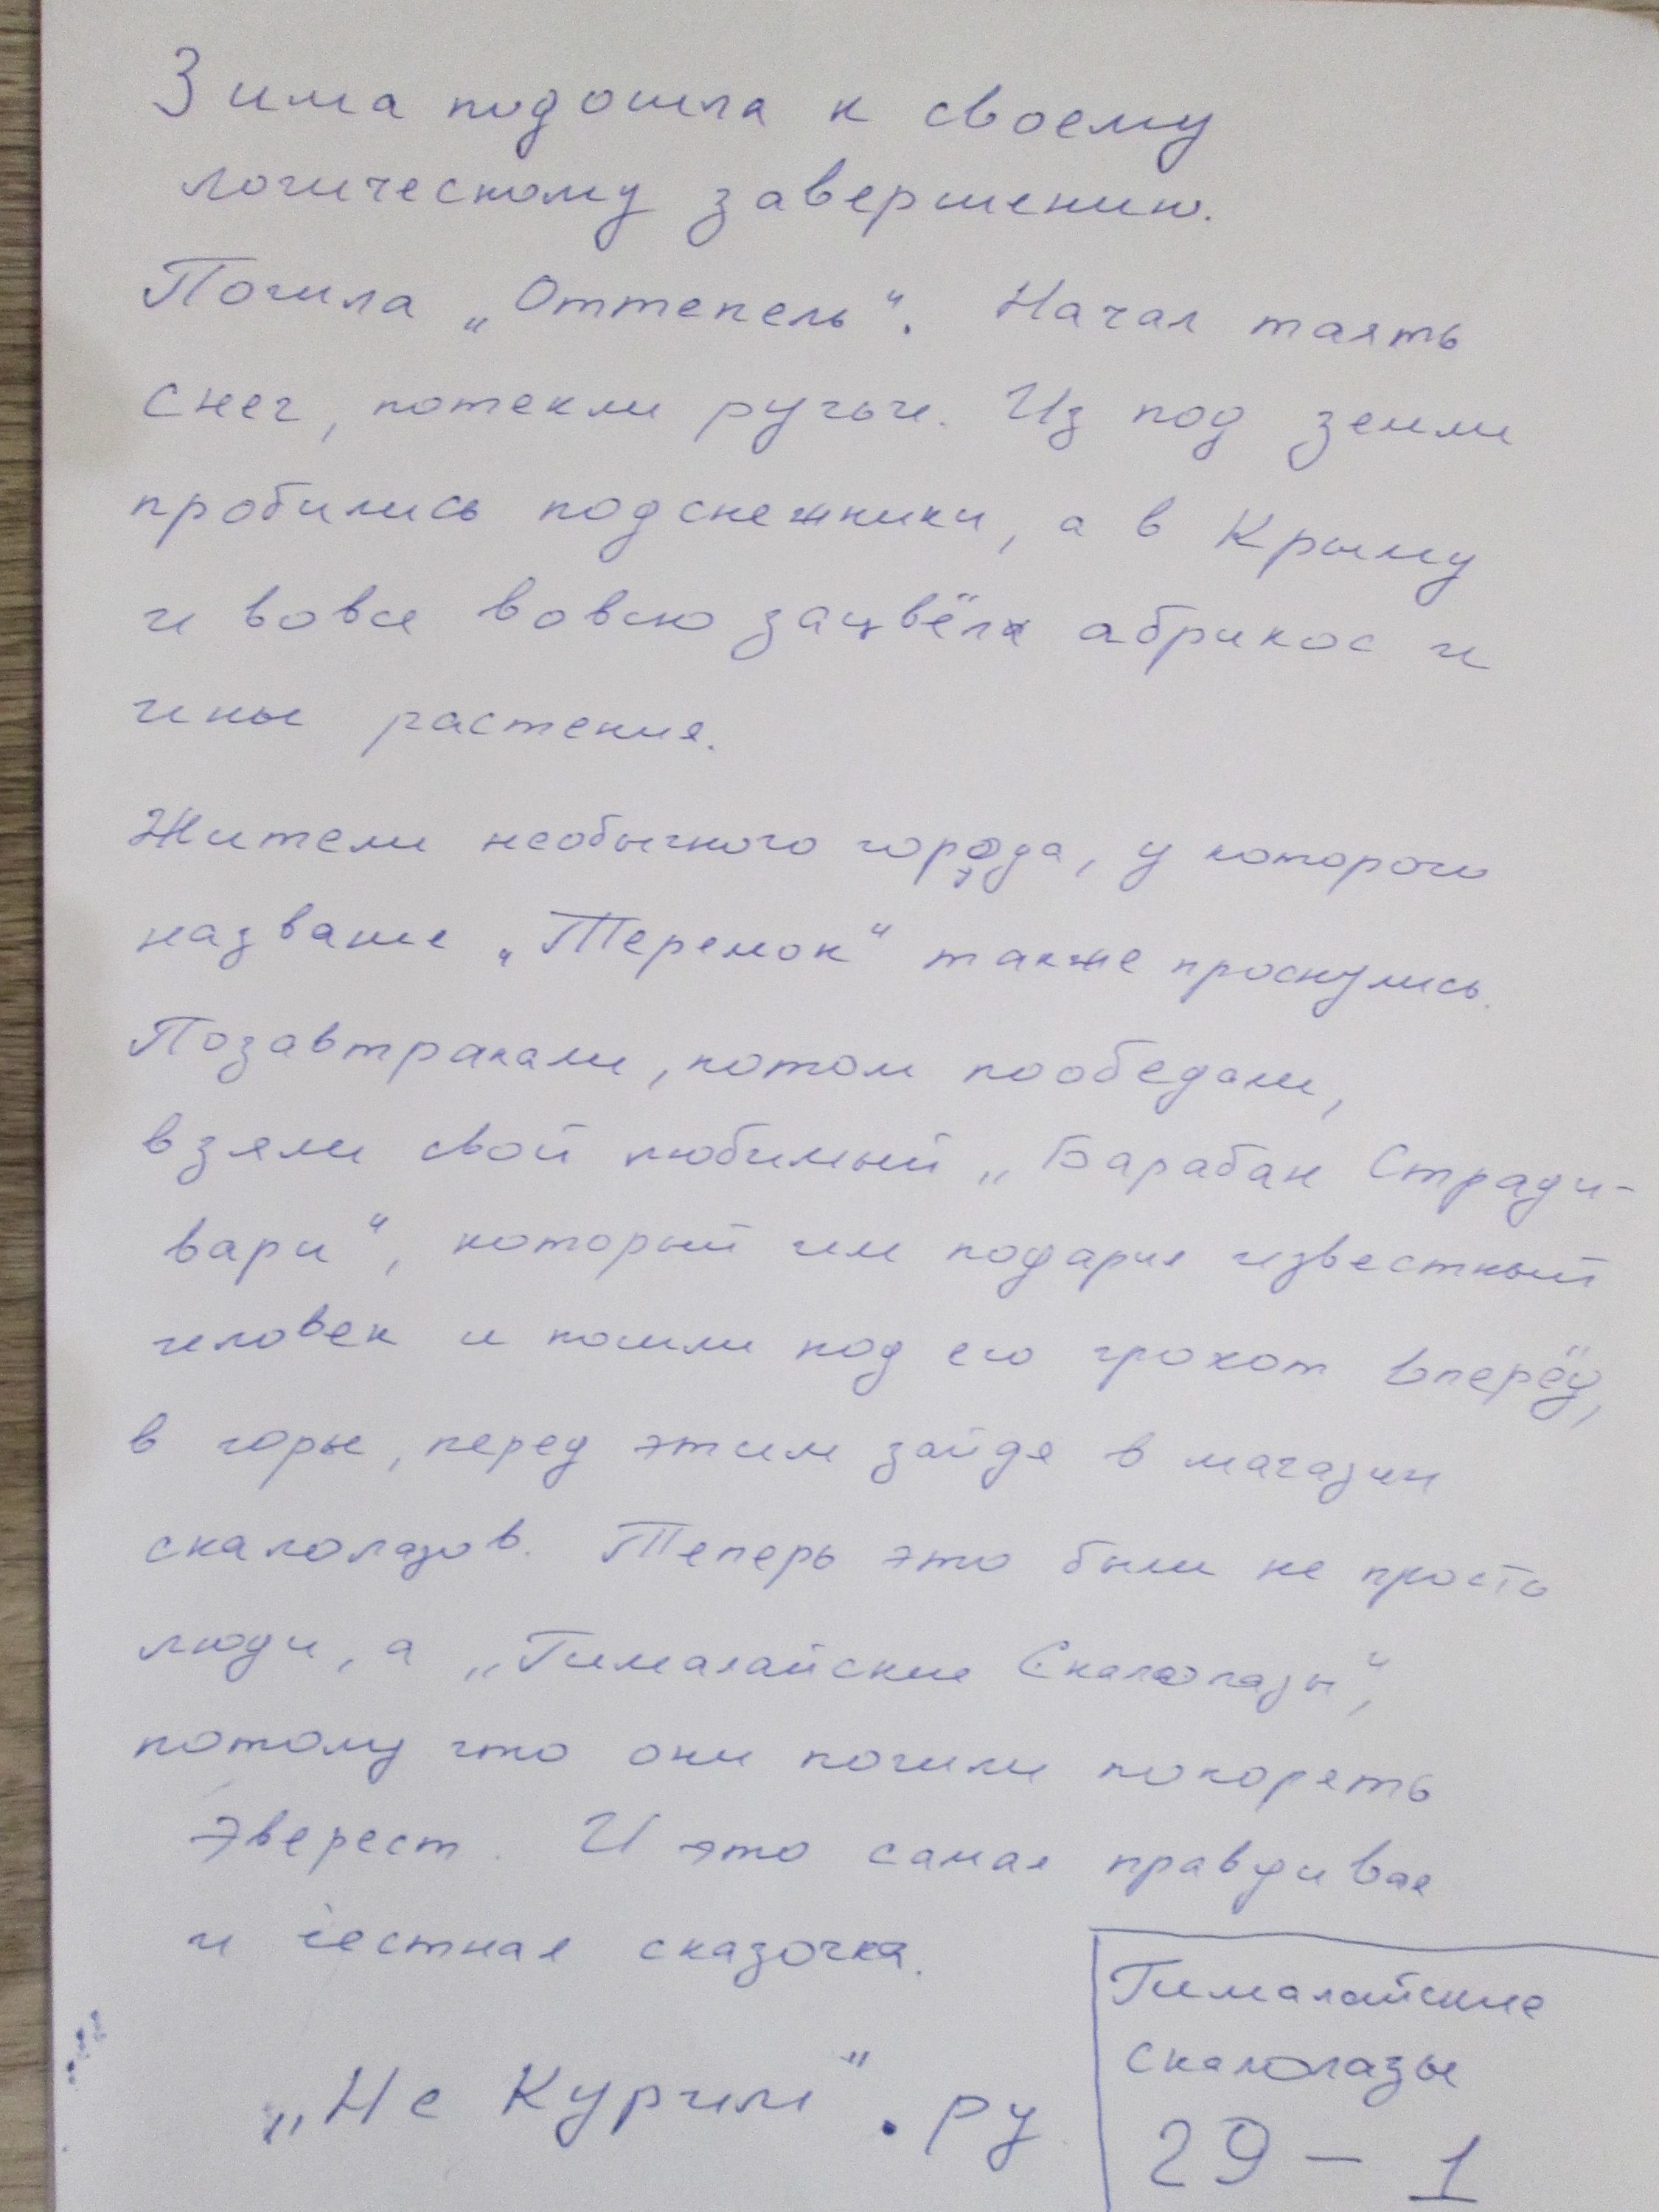 Зима подошла к своему
логическому завершению.
Пошла „Оттепель“. Начал таять
снег, потекли ручьи. Из под земли
пробились подснежники, а в Крыму
и вовсе вовсю зацвёл абрикос и
иные растения.
Жители необычного города, у которого
название „Теремок“ также проснулись.
Позавтракали, потом пообедали,
взяли свой любимый „Барабан Стради-
вари“, который им подарил известный
человек и пошли под его грохот вперёд,
в горы, перед этим зайдя в магазин
скалолазов. Теперь это были не просто
люди, а „Гималайские Скалолазы“,
потому что они пошли покорять
Эверест. И это самая правдивая
и честная сказочка.
„Не Курим“.ру
Гималайские
скалолазы
29 – 1